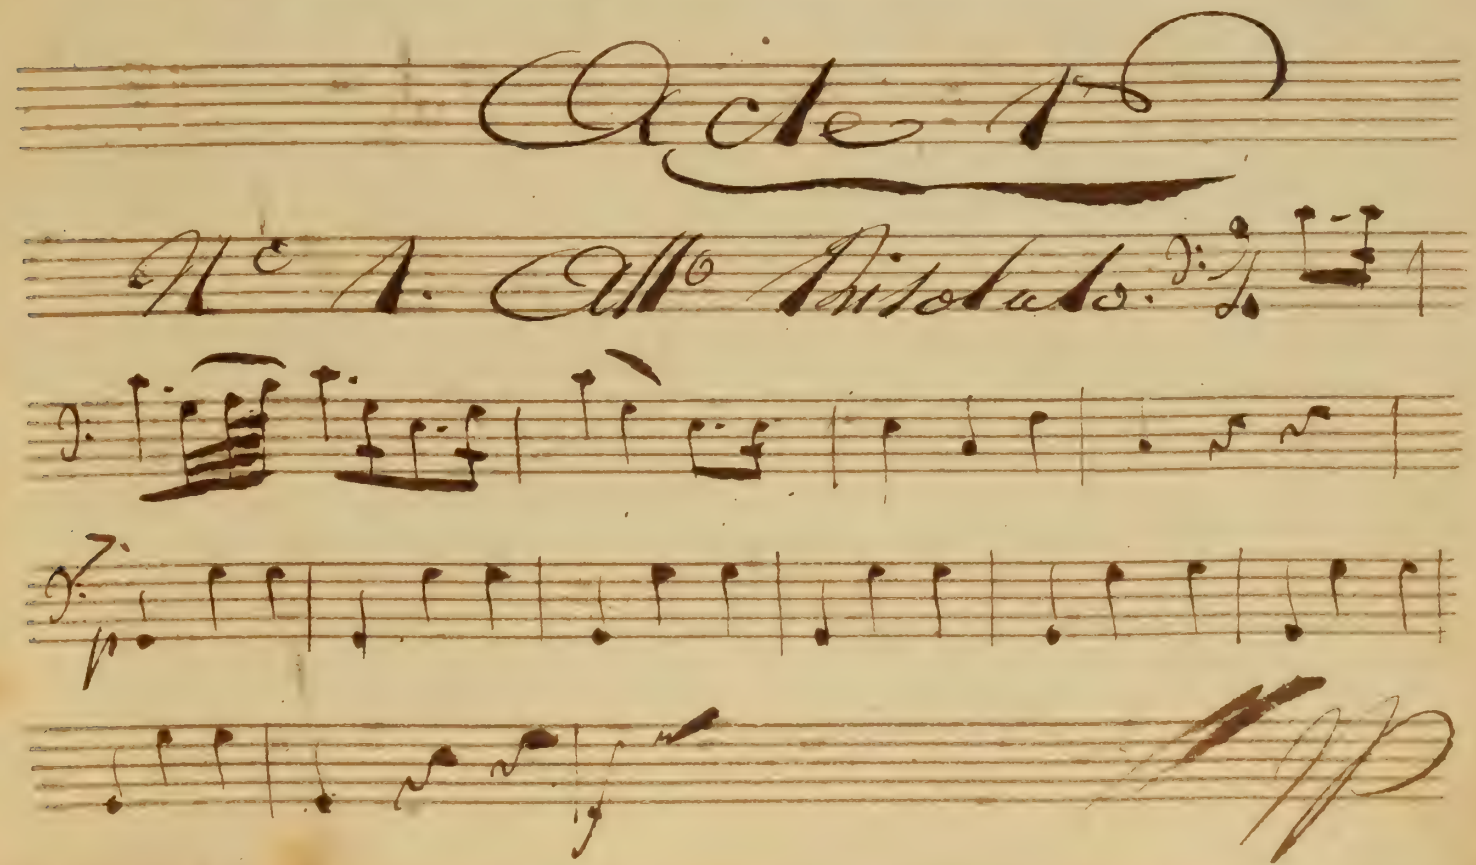 Acte 1
Nº 1. Allº Risoluto.
p